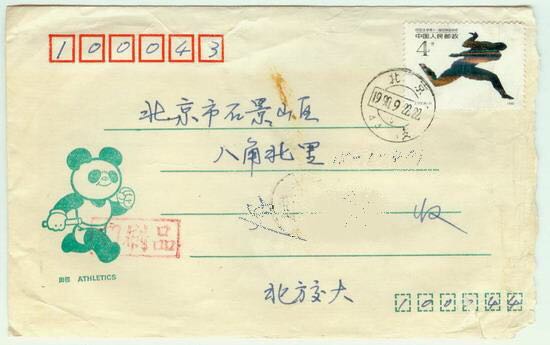 100043
中国人民邮政
4分
北京
1990.9.22.22
北京市石景山区
八角北里
收
印刷品
田径 ATHLETICS
北方交大
100044